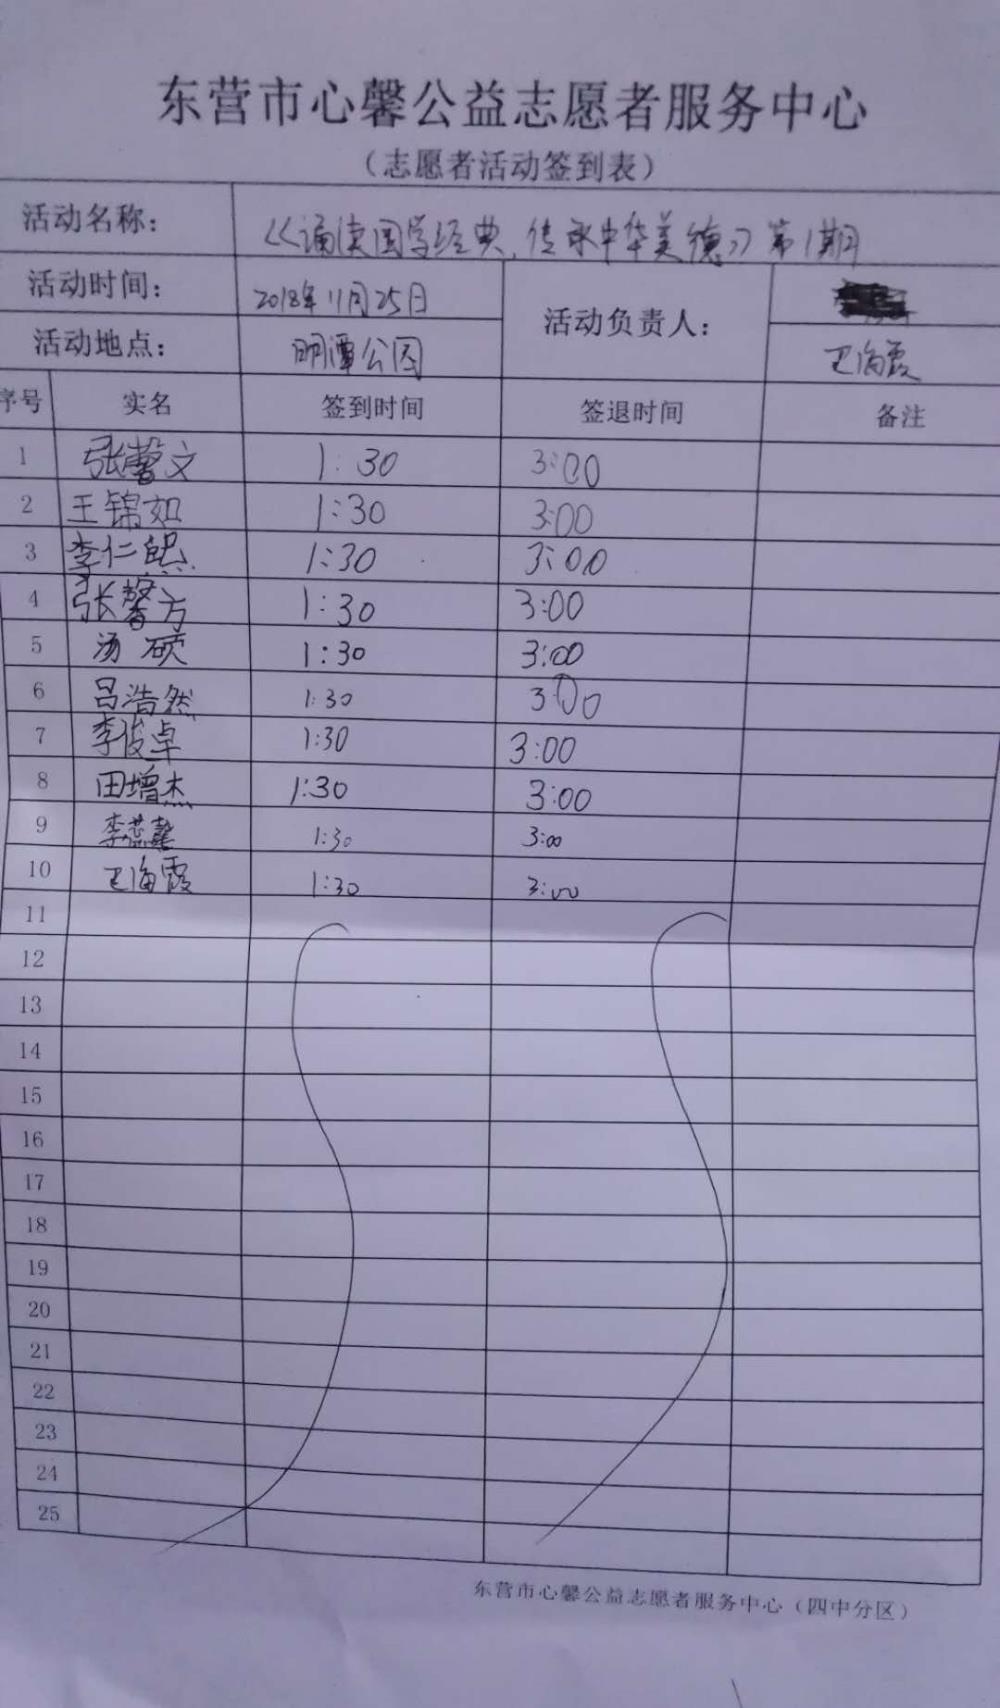 东营市心馨公益志愿者服务中心
（志愿者活动签到表）
活动名称： 《诵读国学经典，传承中华美德》第1期
活动时间： 2018年11月25日 活动负责人：
活动地点： 明潭公园 王海霞
序号 实名 签到时间 签退时间 备注
1 张馨文 1:30 3:00
2 王锦如 1:30 3:00
3 李仁熙 1:30 3:00
4 张馨方 1:30 3:00
5 汤硕 1:30 3:00
6 吕浩然 1:30 3:00
7 李俊卓 1:30 3:00
8 田增杰 1:30 3:00
9 李燕馨 1:30 3:00
10 王海霞 1:30 3:00
11
12
13
14
15
16
17
18
19
20
21
22
23
24
25
东营市心馨公益志愿者服务中心（四中分区）